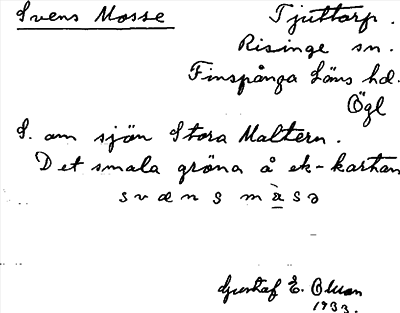 Svens Mosse
Tjuttorp.
Risinge sn.
Finspånga Läns hd.
Ögl
S. om sjön Stora Maltern.
Det smala gröna å ek-kartan
svæns mòsə
Gustaf E. Olsson
1933.